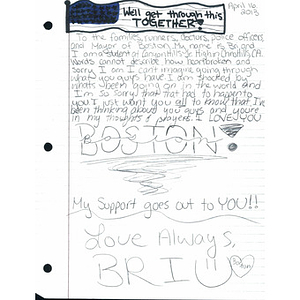 We'll get through this
TOGETHER!
April 16
2013
To the families, runners, doctors, police officers
and Mayor of Boston. My name is Bri and
I am a student at
High School
Words cannot describe how heartbroken and
sorry I am. I can't imagine going through
what you guys have. I am shocked by
what's been going on in the world and
I'm so sorry that that had to happen to
you. I just want you all to know that I've
been thinking about you guys and you're
in my thoughts & prayers. I LOVE YOU
BOSTON!
My Support goes out to YOU!!
Love Always,
BRI